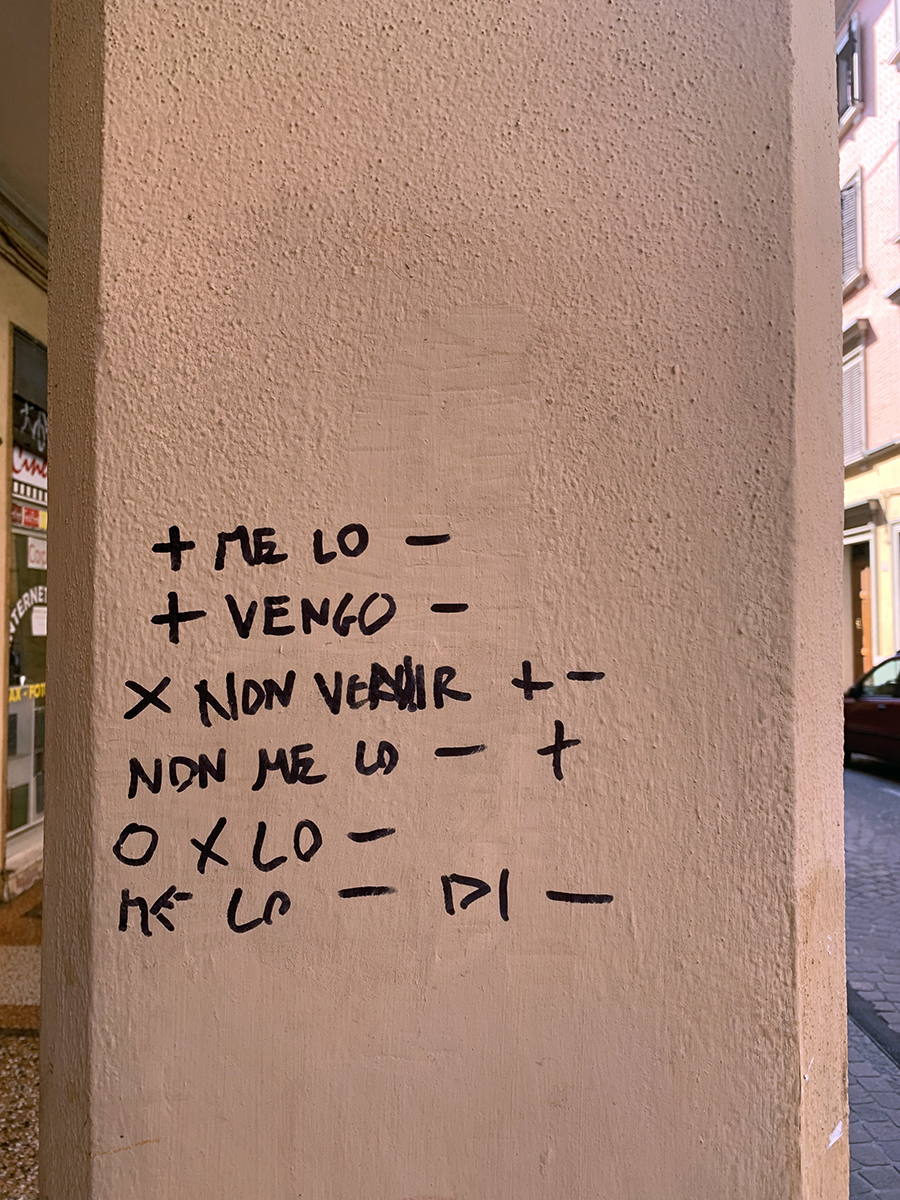 + ME LO -
+ VENGO -
X NON VENIR + -
NON ME LO - +
O X LO -
ME LO - DI -
Ciné
INTERNET
AX - FOT